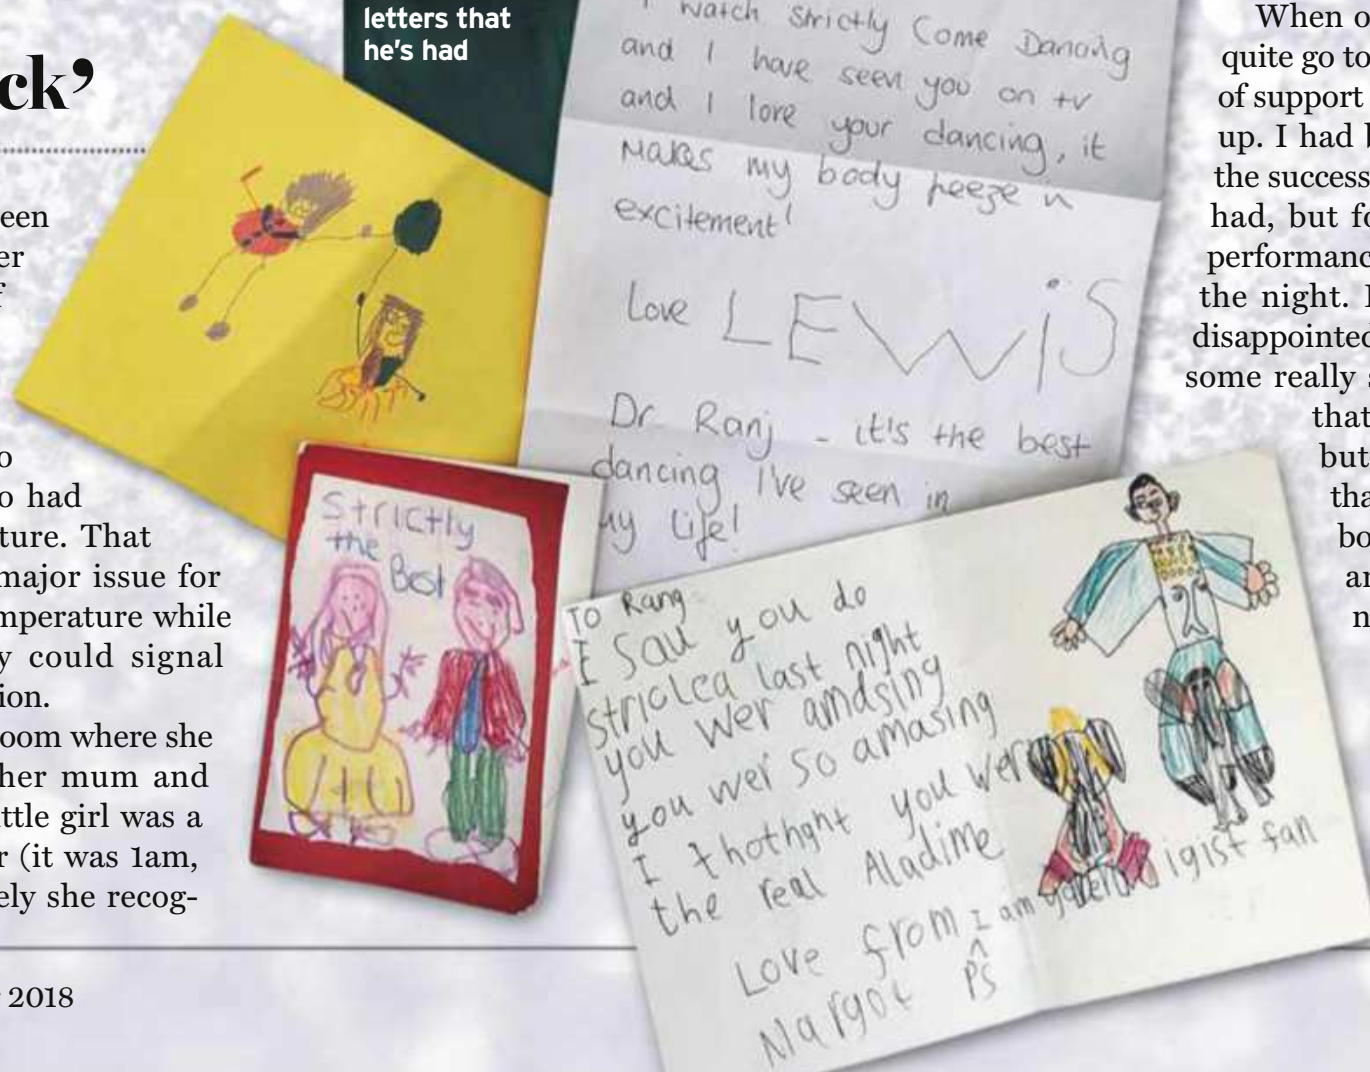 ck’
een
er
f
o
o had
ture. That
major issue for
mperature while
y could signal
ion.
oom where she
her mum and
ttle girl was a
r (it was 1am,
ely she recog-
2018
letters that
he's had
I watch Strictly Come Dancing
and I have seen you on tv
and I love your dancing, it
makes my body feeze in
excitement!
Love LEWiS
Dr Ranj - it's the best
dancing I've seen in
my life!
Strictly
the Best
To Rang
I Sau you do
striclea last night
you wer amdsing
you wer so amasing
I thothght you wer
the real Aladime
Love from
Margot
Ps
I am igist fan
When o
quite go to
of support
up. I had b
the success
had, but fo
performanc
the night. I
disappointed
some really s
that
but
tha
bo
ar
n